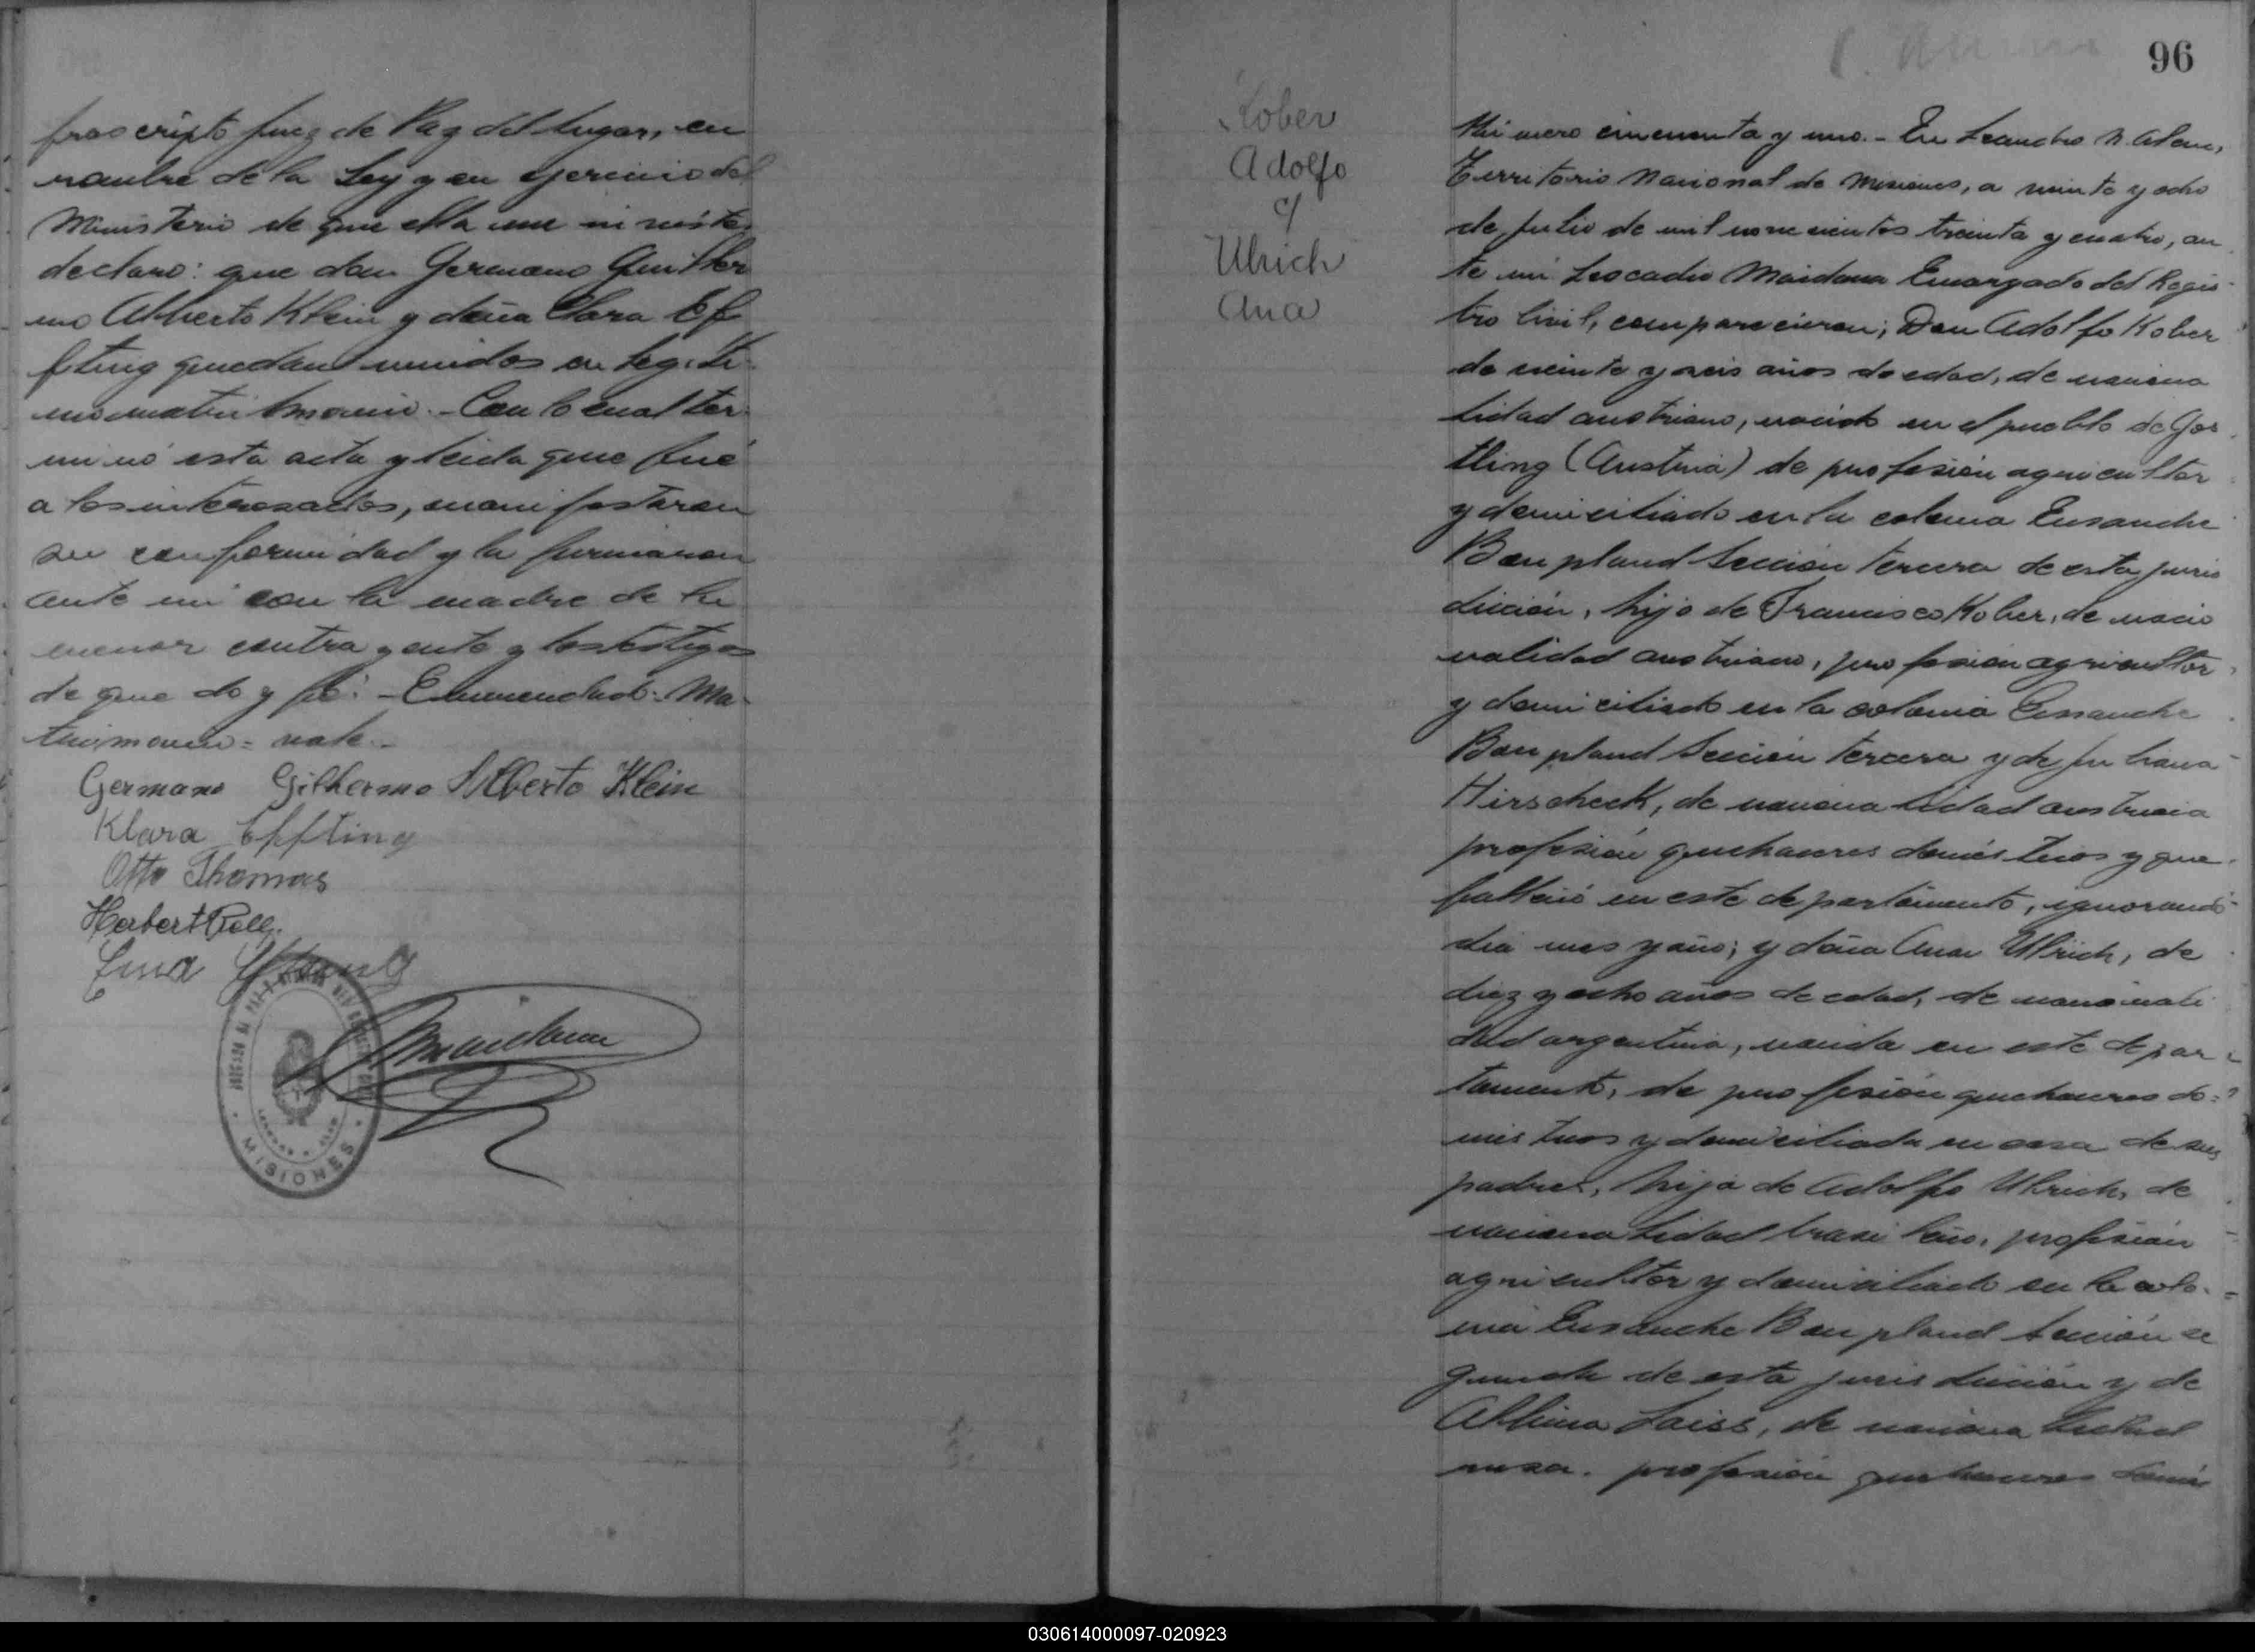 frascripto Juez de Paz del lugar, en
nombre de la Ley y en ejercicio del
Ministerio de que ella me inviste
declaro: que don Germano Guiller
mo Alberto Klein y doña Clara Ef
fting quedan unidos en legíti-
mo matrimonio.- Con lo cual ter
minó esta acta y leida que fué
a los interesados, manifestaron
su conformidad y la firmaron
ante mi con la madre de la
menor contrayente y los testigos
de que doy fé.- Enmendado: Ma-
trimonio = vale.-
Germano Gilhermo Alberto Klein
Klara Effting
Otto Thomas
Herbert
MISIONES
96
Kober
Adolfo
c/
Ulrich
Ana
Número cincuenta y uno.- En Leandro N. Alem,
Territorio Nacional de Misiones, a veinte y ocho
de Julio de mil novecientos treinta y cuatro, an
te mi Leocadio Maidana Encargado del Regis-
tro Civil, comparecieron; Don Adolfo Kober
de veinte y seis años de edad, de naciona
lidad austriaco, nacido en el pueblo de Gos
tling (Austria) de profesión agricultor
y domiciliado en la colonia Ensanche
Bonpland Sección tercera de esta juris
dicción, hijo de Francisco Kober, de nacio
nalidad austriaco, profesión agricultor
y domiciliado en la colonia Ensanche
Bonpland Sección tercera y de Juliana
Hirscheck, de nacionalidad austriaca
profesión quehaceres domésticos y que
falleció en este departamento, ignorando
dia mes y año; y doña Ana Ulrich, de
diez y ocho años de edad, de nacionali
dad argentina, nacida en este depar
tamento, de profesión quehaceres do-
mésticos y domiciliada en casa de sus
padres, hija de Adolfo Ulrich, de
nacionalidad brasileño, profesión
agricultor y domiciliado en la colo-
nia Ensanche Bonpland Sección se
gunda de esta jurisdicción y de
Albina Laiss, de nacionalidad
rusa. profesión quehaceres domés
030614000097-020923